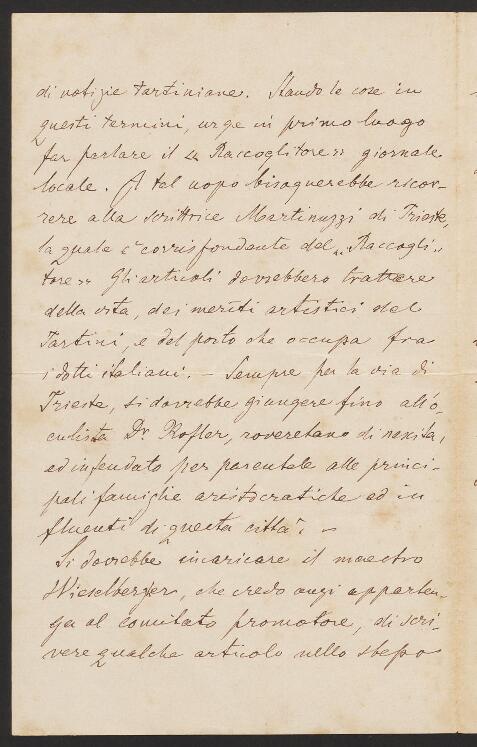 di notizie tartiniane. Stando le cose in
questi termini, urge in primo luogo
far parlare il « Raccoglitore» giornale
locale. A tal uopo bisognerebbe ricor-
rere alla scrittrice Martinuzzi di Trieste,
la quale è corrispondante del „ Raccogli„
tore» Gli articoli dovrebbero trattare
della vita, dei meriti artistici del
Tartini, e del posto che occupa fra
i dotti italiani. – Sempre per la via di
Trieste, si dovrebbe giungere fino all'o-
culista Dr Kofler, roveretano di nascita,
ed infeudato per parentele alle princi-
pali famiglie aristocratiche ed in
fluenti di questa città. –
Si dovrebbe incaricare il maestro
Wieselberger, che credo anzi apparten-
ga al comitato promotore, di scri-
vere qualche articolo nello stesso